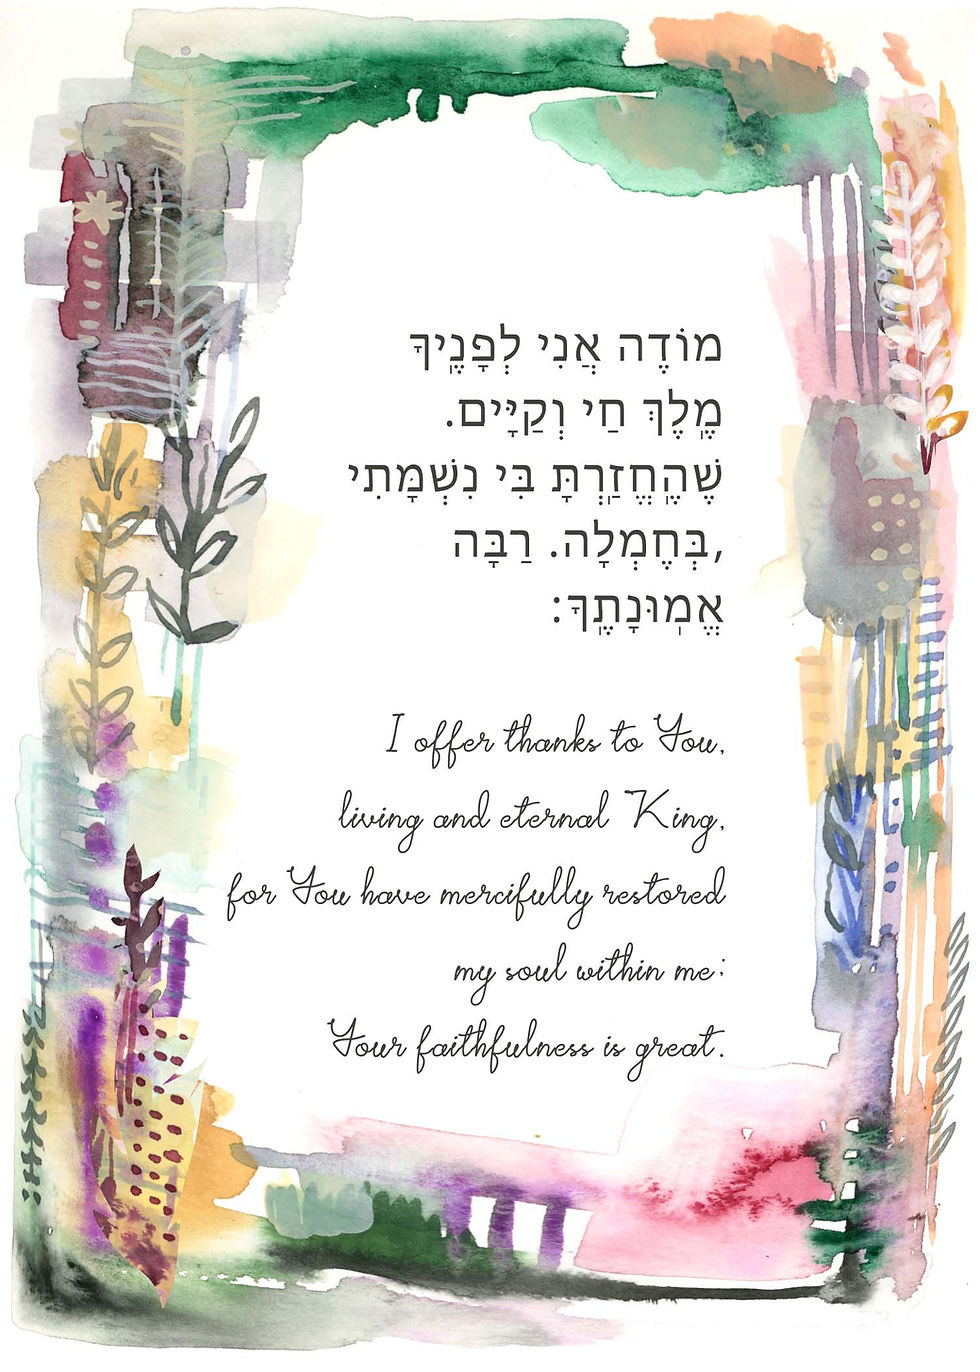 מוֹדֶה אֲנִי לְפָנֶֽיךָ
מֶֽלֶךְ חַי וְקַיָּים.
שֶׁהֶֽחֱזַֽרְתָּ בִּי נִשְׁמָתִי
,בְּחֶמְלָה. רַבָּה
אֱמֽוּנָתֶֽךָ:
I offer thanks to You,
living and eternal King,
for You have mercifully restored
my soul within me;
Your faithfulness is great.